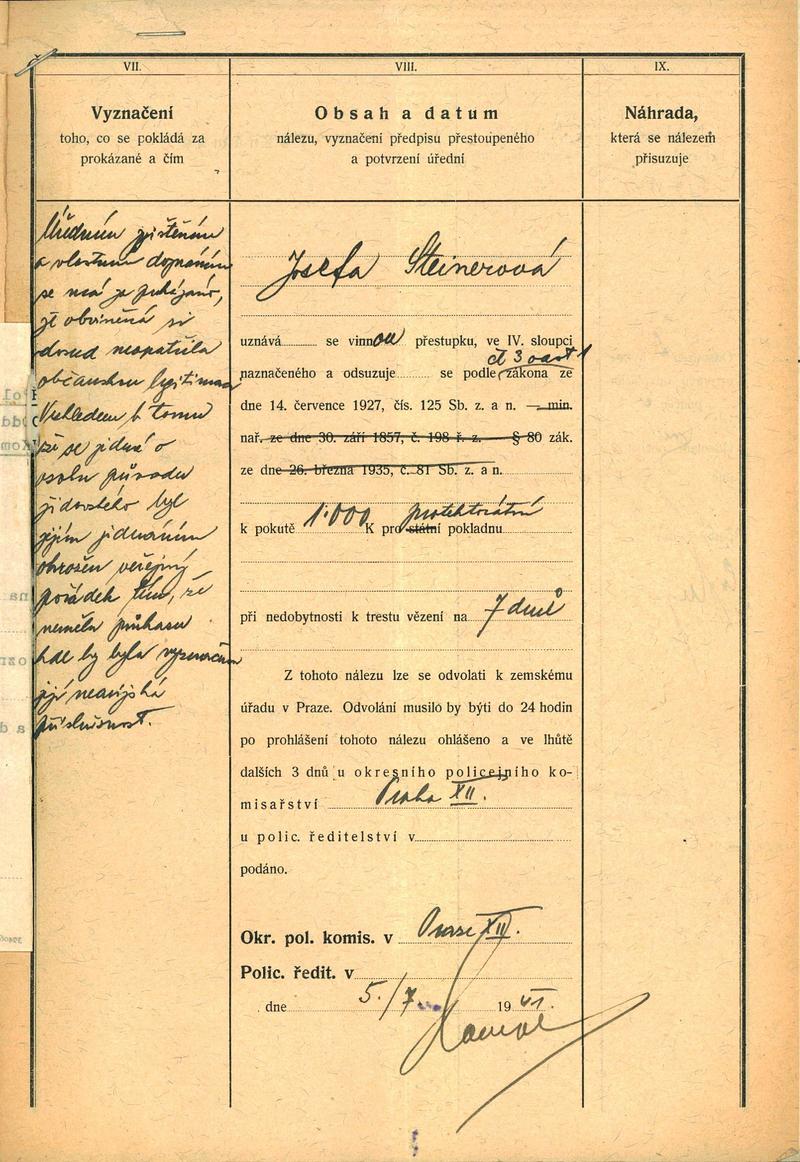 VII.
Vyznačení
toho, co se pokládá za
prokázané a čím
Úředním zjištěním
a vlastním doznáním
se má za prokázáno,
že obviněná si
dosud neopatřila
občanskou legitimaci
Vzhledem k tomu
že se jedná o
osobu původu
židovského byl
jejím jednáním
ohrožen veřejný
pořádek tím, že
neměla průkazu
kde by byla vyznačena
její neárijská
příslušnost.
VIII.
Obsah a datum
nálezu, vyznačení předpisu přestoupeného
a potvrzení úřední
Josefa Steinerová
uznává se vinnou přestupku, ve IV. sloupci
čl 3 odst 1
naznačeného a odsuzuje se podle zákona ze
dne 14. července 1927, čís. 125 Sb. z. a n. — min.
nař. ze dne 30. září 1857, č. 198 ř. z. § 80 zák.
ze dne 26. března 1935, č. 81 Sb. z. a n.
protektorátní
k pokutě 1.000 K pro státní pokladnu
při nedobytnosti k trestu vězení na 7 dnů
Z tohoto nálezu lze se odvolati k zemskému
úřadu v Praze. Odvolání musilo by býti do 24 hodin
po prohlášení tohoto nálezu ohlášeno a ve lhůtě
dalších 3 dnů u okresního policejního ko-
misařství Praha XII.
u polic. ředitelství v
podáno.
Okr. pol. komis. v Praze XII.
Polic. ředit. v
dne 5./7. 1941.
IX.
Náhrada,
která se nálezem
přisuzuje